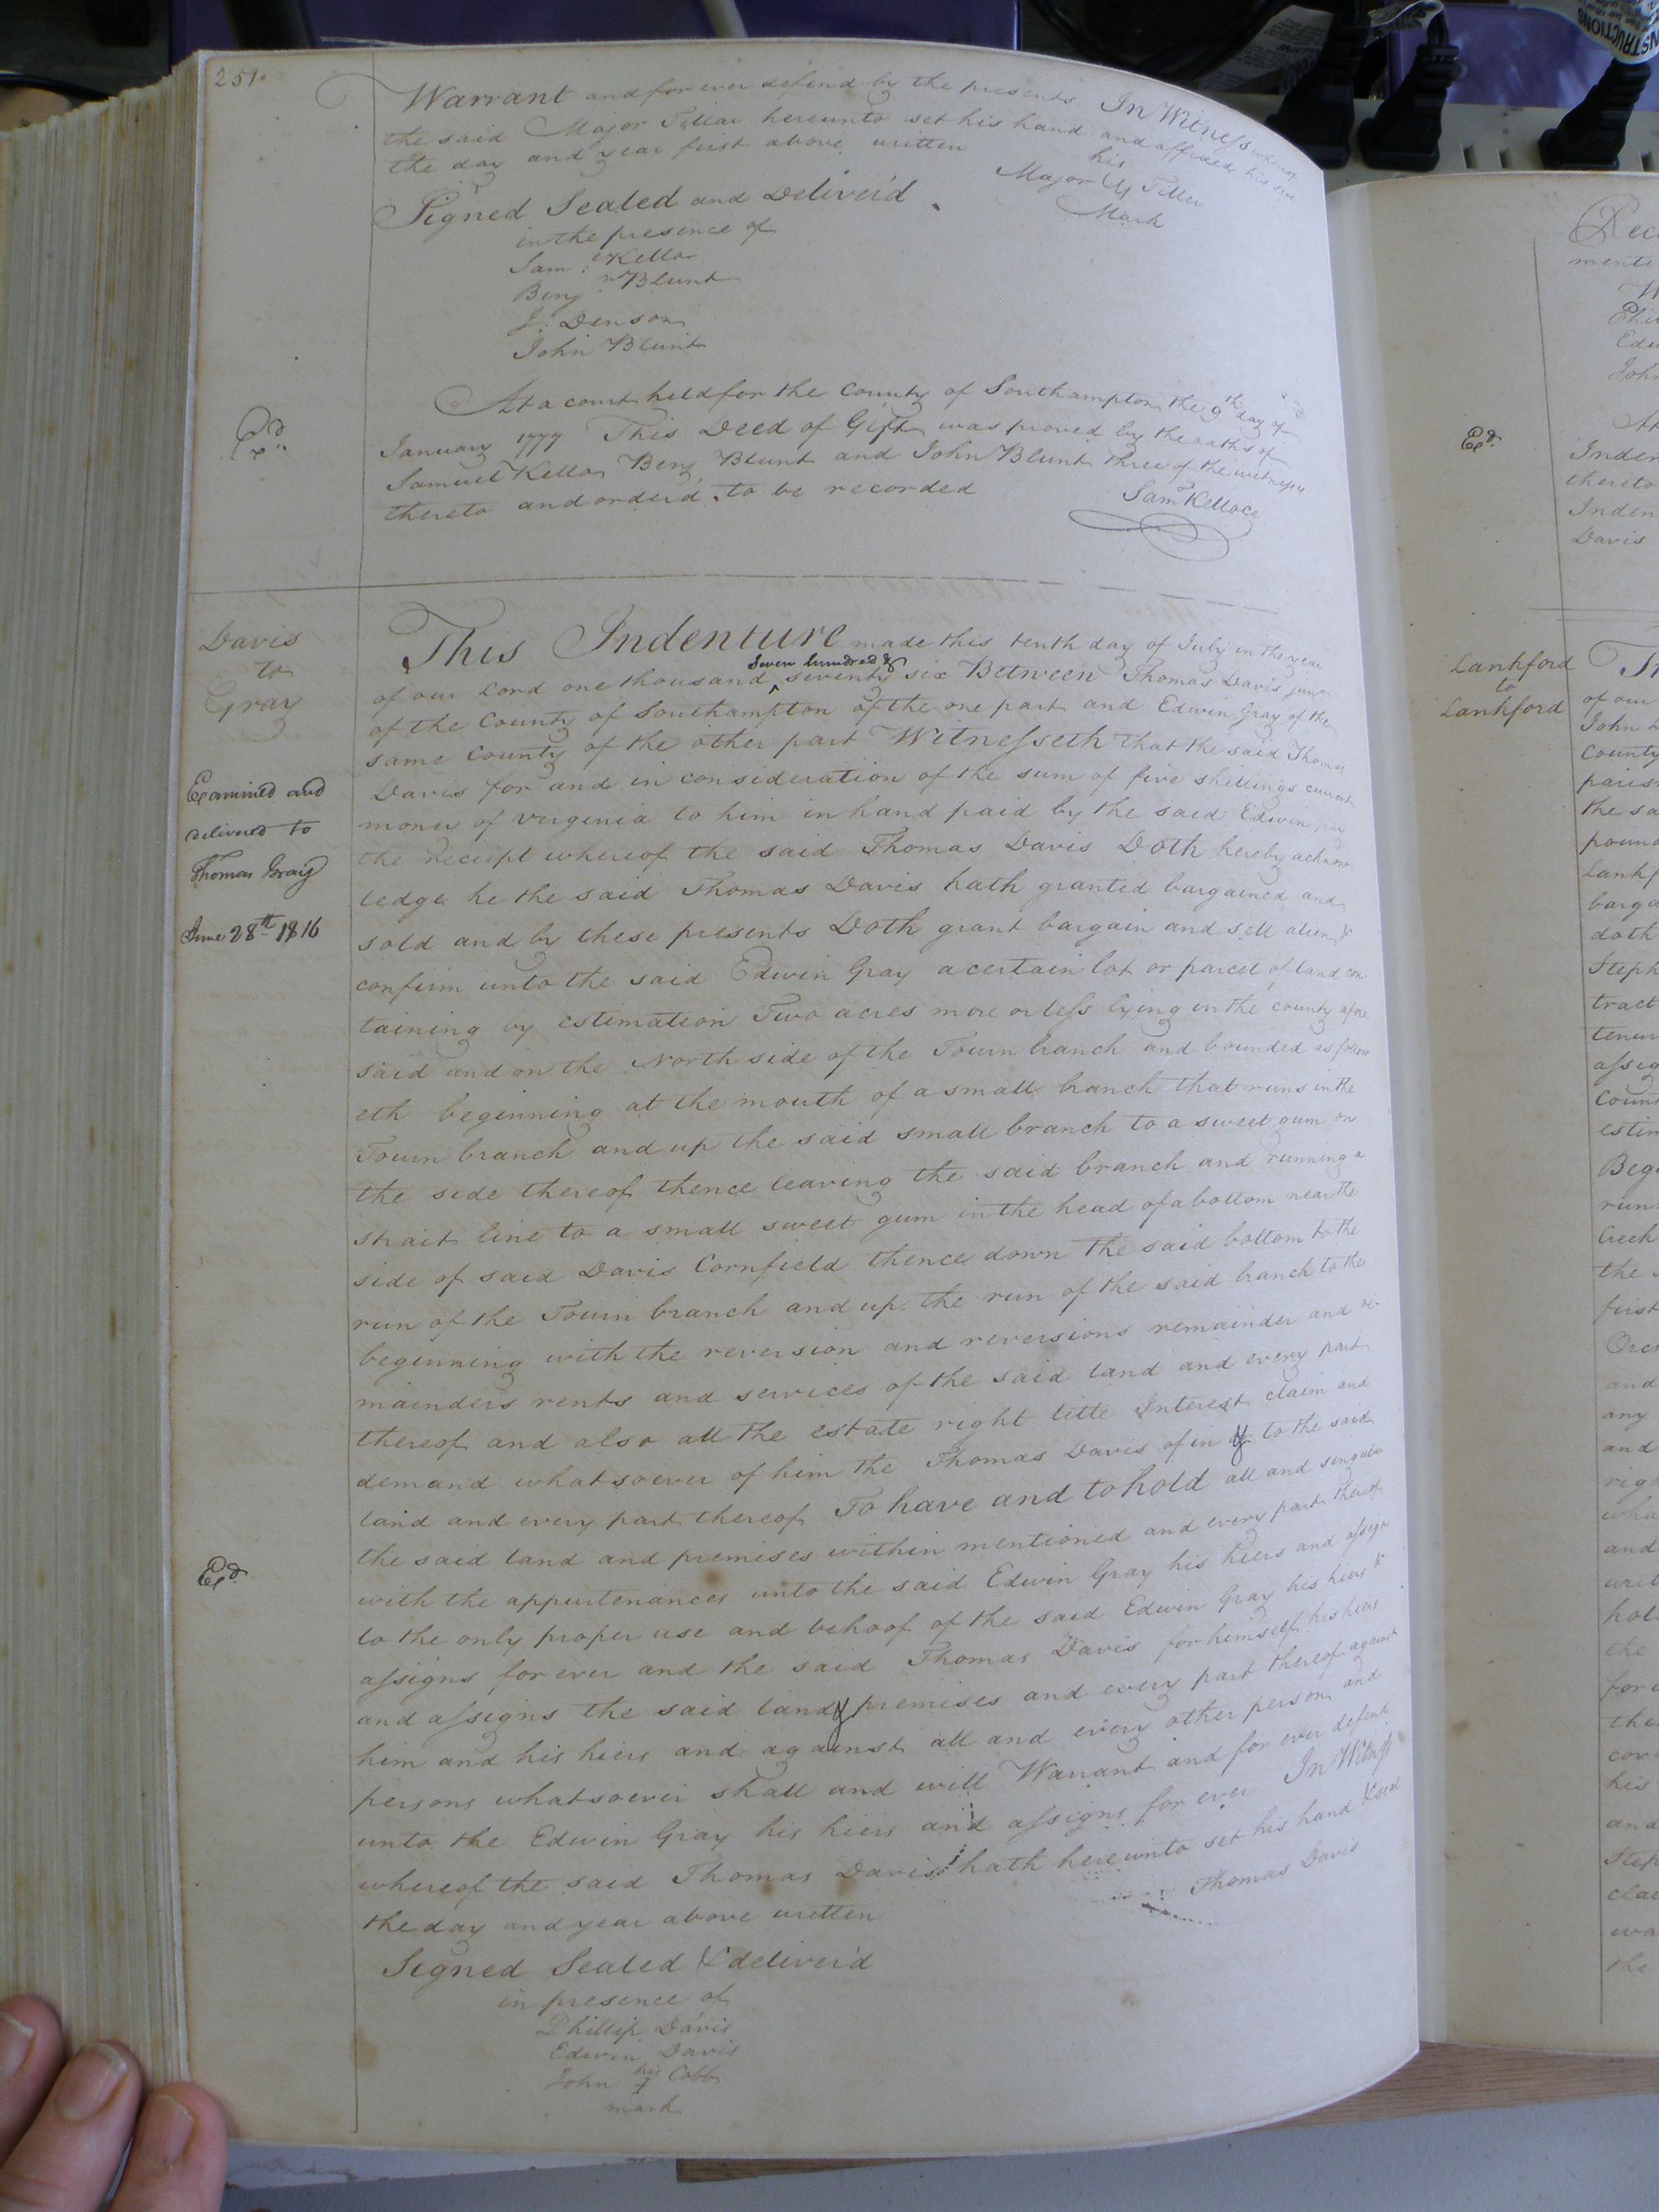 251.
Warrant and for ever defend by the presents. In Witness whereof
the said Major Tellar hereunto set his hand and affixed his seal
the day and year first above written
his
Major Tiller
Mark
Signed Sealed and Deliver'd
in the presence of
Sam: Kello
Benj. Blunt
J: Denson
John Blunt
At a court held for the County of Southampton the 9th day of
January 1777 This Deed of Gift was proved by the oaths of
Samuel Kello Benj Blunt and John Blunt three of the witnesses
thereto and order'd to be recorded
Exd.
Davis
to
Gray
Examined and
delivered to
Thomas Gray
June 28th 1816
This Indenture made this tenth day of July in the year
of our Lord one thousand seven hundred & seventy six Between Thomas Davis junr
of the County of Southampton of the one part and Edwin Gray of the
same County of the other part Witnesseth that the said Thomas
Davis for and in consideration of the sum of five shillings current
money of Verginia to him in hand paid by the said Edwin Gray
the Receipt whereof the said Thomas Davis Doth hereby acknow
ledge he the said Thomas Davis hath granted bargained and
sold and by these presents Doth grant bargain and sell alien &
confirm unto the said Edwin Gray a certain lot or parcel of land con
taining by estimation Two acres more or less lying in the county afore
said and on the North side of the Town branch and bounded as follow
eth beginning at the mouth of a small branch that runs in the
Town branch and up the said small branch to a sweet gum on
the side thereof thence leaving the said branch and running a
strait line to a small sweet gum in the head of a bottom near the
side of said Davis Cornfield thence down the said bottom to the
run of the Town branch and up the run of the said branch to the
beginning with the reversion and reversions remainder and re-
mainders rents and services of the said land and every part
thereof and also all the estate right title Interest claim and
demand whatsoever of him the Thomas Davis of in & to the said
land and every part thereof To have and to hold all and singular
the said land and premises within mentioned and every part thereof
with the appurtenances unto the said Edwin Gray his hiers and assigns
to the only proper use and behoof of the said Edwin Gray his hiers &
assigns for ever and the said Thomas Davis for himself his hiers
and assigns the said land & premises and every part thereof against
him and his hiers and against all and every other person and
persons whatsoever shall and will Warrant and for ever defend
unto the Edwin Gray his hiers and assigns for ever In Witness
whereof the said Thomas Davis hath hereunto set his hand & seal
the day and year above written
Thomas Davis
Signed Sealed & deliver'd
in presence of
Phillip Davis
Edwin Davis
his
John + Cobb
mark
Exd.
Exd.
Lankford
to
Lankford
Inden
thereto
Inden
Davis
of our
John
County
paris
the sa
pound
Lankf
barga
doth
Steph
tract
assig
Count
estim
Beg
run
Creek
the
first
and
any
and
righ
wha
and
hol
the
for
the
his
and
Step
cla
wa
the